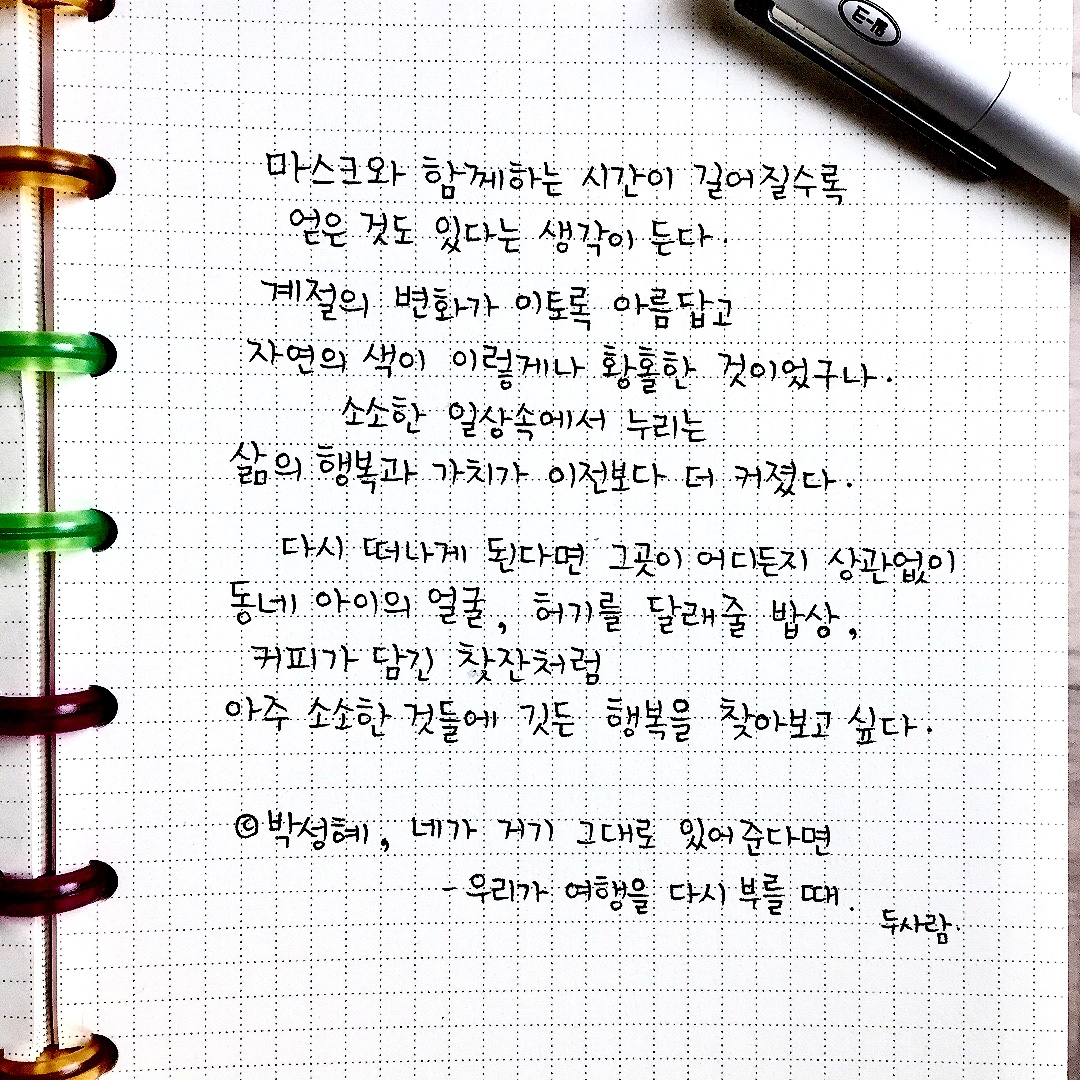 마스크와 함께하는 시간이 길어질수록
얻은 것도 있다는 생각이 든다.
계절의 변화가 이토록 아름답고
자연의 색이 이렇게나 황홀한 것이었구나.
소소한 일상속에서 누리는
삶의 행복과 가치가 이전보다 더 커졌다.
다시 떠나게 된다면 그곳이 어디든지 상관없이
동네 아이의 얼굴, 허기를 달래줄 밥상,
커피가 담긴 찻잔처럼
아주 소소한 것들에 깃든 행복을 찾아보고 싶다.
©박성혜, 네가 거기 그대로 있어준다면
- 우리가 여행을 다시 부를 때.
두사람.